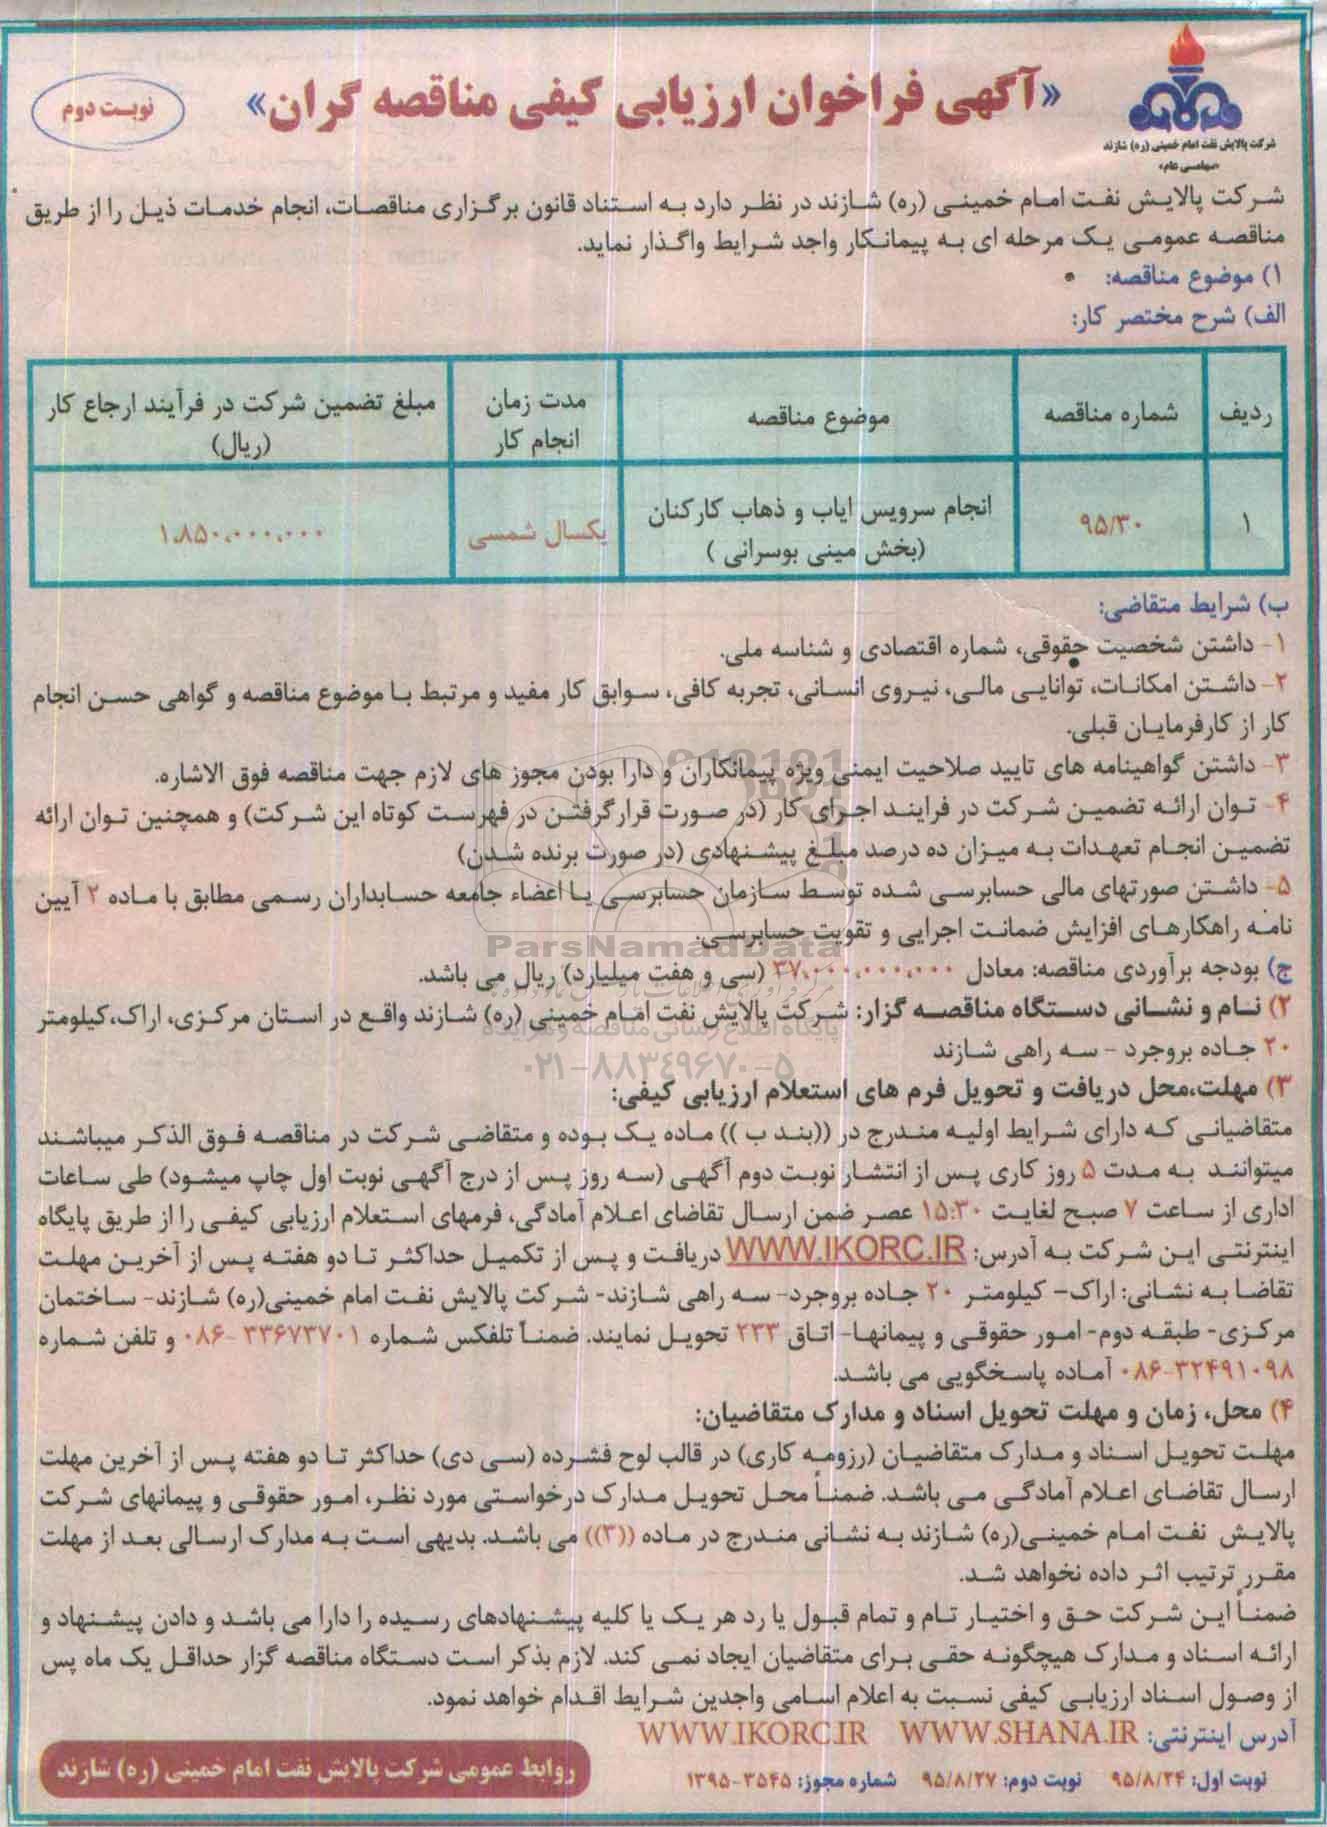 شرکت پالایش نفت امام خمینی (ره) شازند
«سهامی عام»
«آگهی فراخوان ارزیابی کیفی مناقصه گران»
نوبت دوم
شرکت پالایش نفت امام خمینی (ره) شازند در نظر دارد به استناد قانون برگزاری مناقصات، انجام خدمات ذیل را از طریق
مناقصه عمومی یک مرحله ای به پیمانکار واجد شرایط واگذار نماید.
۱) موضوع مناقصه:
الف) شرح مختصر کار:
ردیف شماره مناقصه موضوع مناقصه مدت زمان انجام کار مبلغ تضمین شرکت در فرآیند ارجاع کار (ریال)
۱ ۹۵/۳۰ انجام سرویس ایاب و ذهاب کارکنان (بخش مینی بوسرانی ) یکسال شمسی ۱،۸۵۰،۰۰۰،۰۰۰
ب) شرایط متقاضی:
۱- داشتن شخصیت حقوقی، شماره اقتصادی و شناسه ملی.
۲- داشتن امکانات، توانایی مالی، نیروی انسانی، تجربه کافی، سوابق کار مفید و مرتبط با موضوع مناقصه و گواهی حسن انجام
کار از کارفرمایان قبلی.
۳- داشتن گواهینامه های تایید صلاحیت ایمنی ویژه پیمانکاران و دارا بودن مجوز های لازم جهت مناقصه فوق الاشاره.
۴- توان ارائه تضمین شرکت در فرایند اجرای کار (در صورت قرارگرفتن در فهرست کوتاه این شرکت) و همچنین توان ارائه
تضمین انجام تعهدات به میزان ده درصد مبلغ پیشنهادی (در صورت برنده شدن)
۵- داشتن صورتهای مالی حسابرسی شده توسط سازمان حسابرسی یا اعضاء جامعه حسابداران رسمی مطابق با ماده ۲ آیین
نامه راهکارهای افزایش ضمانت اجرایی و تقویت حسابرسی.
ParsNamadData
ج) بودجه برآوردی مناقصه: معادل ۳۷،۰۰۰،۰۰۰،۰۰۰ (سی و هفت میلیارد) ریال می باشد.
۲) نام و نشانی دستگاه مناقصه گزار: شرکت پالایش نفت امام خمینی (ره) شازند واقع در استان مرکزی، اراک،کیلومتر
پایگاه اطلاع رسانی مناقصه و مزایده
۲۰ جاده بروجرد - سه راهی شازند
۰۲۱-۸۸۳۴۹۶۷۰-۵
۳) مهلت،محل دریافت و تحویل فرم های استعلام ارزیابی کیفی:
متقاضیانی که دارای شرایط اولیه مندرج در ((بند ب )) ماده یک بوده و متقاضی شرکت در مناقصه فوق الذکر میباشند
میتوانند به مدت ۵ روز کاری پس از انتشار نوبت دوم آگهی (سه روز پس از درج آگهی نوبت اول چاپ میشود) طی ساعات
اداری از ساعت ۷ صبح لغایت ۱۵:۳۰ عصر ضمن ارسال تقاضای اعلام آمادگی، فرمهای استعلام ارزیابی کیفی را از طریق پایگاه
اینترنتی این شرکت به آدرس: WWW.IKORC.IR دریافت و پس از تکمیل حداکثر تا دو هفته پس از آخرین مهلت
تقاضا به نشانی: اراک- کیلومتر ۲۰ جاده بروجرد- سه راهی شازند- شرکت پالایش نفت امام خمینی(ره) شازند- ساختمان
مرکزی- طبقه دوم- امور حقوقی و پیمانها- اتاق ۲۳۳ تحویل نمایند. ضمناً تلفکس شماره ۳۳۶۷۳۷۰۱-۰۸۶ و تلفن شماره
۰۸۶-۳۲۴۹۱۰۹۸ آماده پاسخگویی می باشد.
۴) محل، زمان و مهلت تحویل اسناد و مدارک متقاضیان:
مهلت تحویل اسناد و مدارک متقاضیان (رزومه کاری) در قالب لوح فشرده (سی دی) حداکثر تا دو هفته پس از آخرین مهلت
ارسال تقاضای اعلام آمادگی می باشد. ضمناً محل تحویل مدارک درخواستی مورد نظر، امور حقوقی و پیمانهای شرکت
پالایش نفت امام خمینی(ره) شازند به نشانی مندرج در ماده ((۳)) می باشد. بدیهی است به مدارک ارسالی بعد از مهلت
مقرر ترتیب اثر داده نخواهد شد.
ضمناً این شرکت حق و اختیار تام و تمام قبول یا رد هر یک یا کلیه پیشنهادهای رسیده را دارا می باشد و دادن پیشنهاد و
ارائه اسناد و مدارک هیچگونه حقی برای متقاضیان ایجاد نمی کند. لازم بذکر است دستگاه مناقصه گزار حداقل یک ماه پس
از وصول اسناد ارزیابی کیفی نسبت به اعلام اسامی واجدین شرایط اقدام خواهد نمود.
آدرس اینترنتی: WWW.IKORC.IR WWW.SHANA.IR
نوبت اول: ۹۵/۸/۲۴ نوبت دوم: ۹۵/۸/۲۷ شماره مجوز: ۳۵۴۵-۱۳۹۵
روابط عمومی شرکت پالایش نفت امام خمینی (ره) شازند